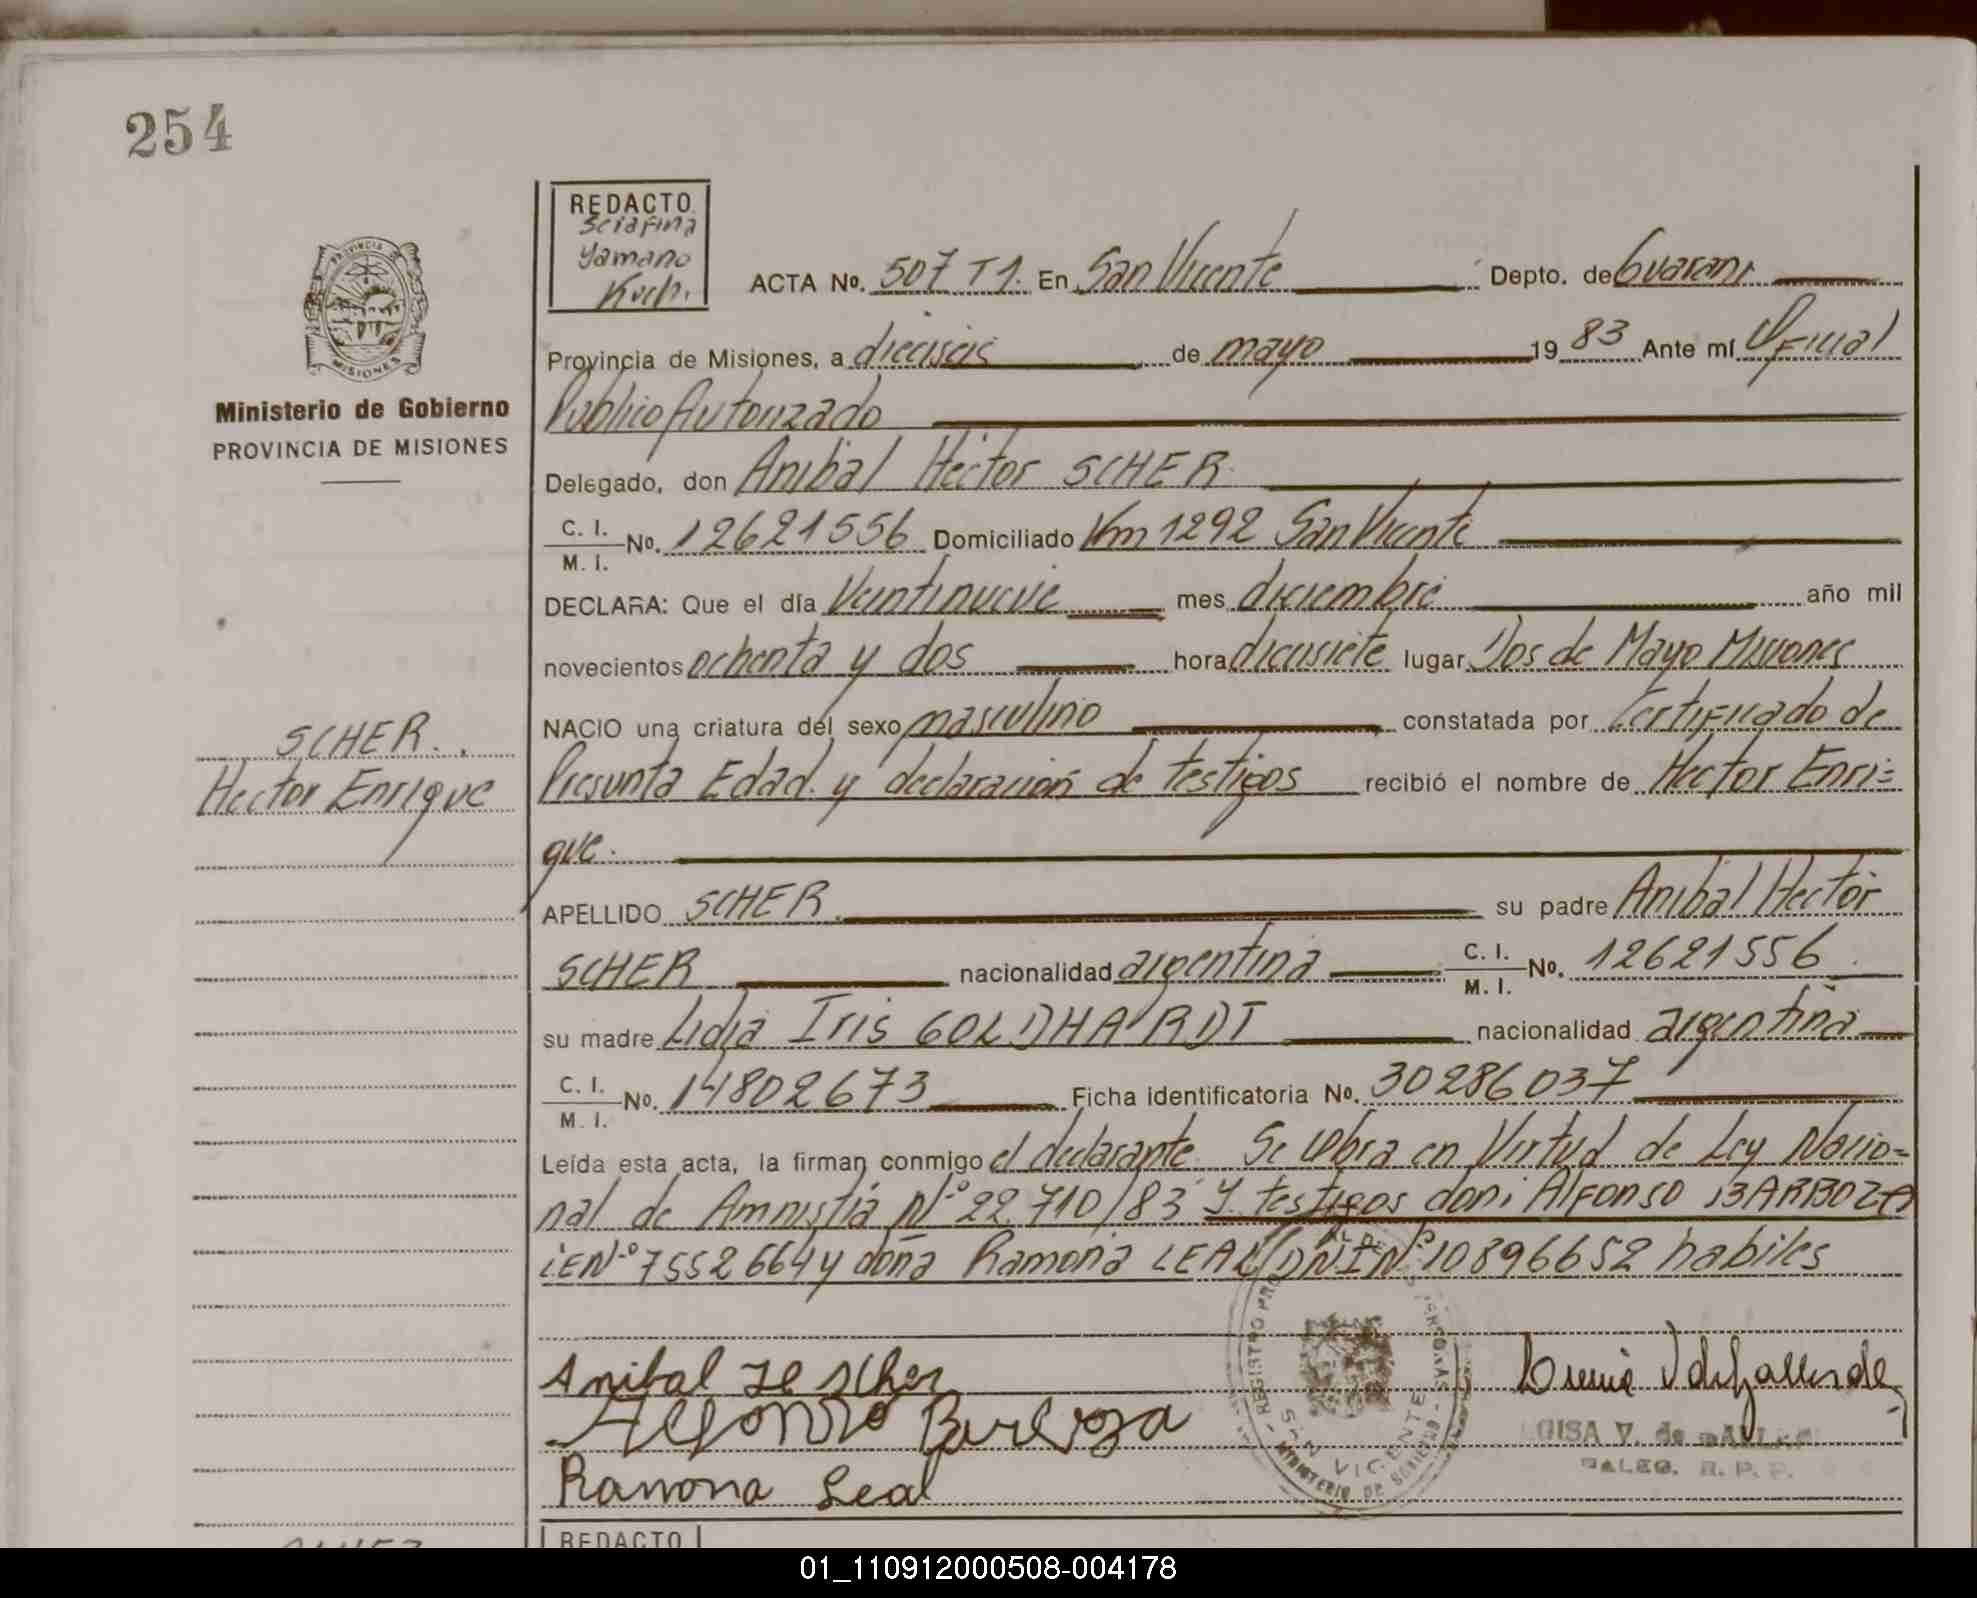 254
REDACTO
Serafina
Yamano
Koch.
PROVINCIA DE
MISIONES
Ministerio de Gobierno
PROVINCIA DE MISIONES
ACTA No. 507 T1. En San Vicente Depto. de Guarani
Provincia de Misiones, a dieciseis de mayo 1983 Ante mí Oficial
Publico Autorizado
Delegado, don Anibal Hector SCHER
C. I.
M. I. No. 12621556 Domiciliado Km 1292 San Vicente
DECLARA: Que el día Veintinueve mes diciembre año mil
novecientos ochenta y dos hora diecisiete lugar Dos de Mayo Misiones
NACIO una criatura del sexo masculino constatada por Certificado de
Presunta Edad y declaración de testigos recibió el nombre de Hector Enri=
que.
SCHER.
Hector Enrique
APELLIDO SCHER. su padre Anibal Hector
SCHER nacionalidad argentina C. I.
M. I. No. 12621556
su madre Lidia Iris GOLDHARDT nacionalidad argentina
C. I.
M. I. No. 14802673 Ficha identificatoria No. 30286037
Leída esta acta, la firman conmigo el declarante. Se labra en Virtud de Ley Nacio=
nal de Amnistía Nº 22.710/83 Y testigos don: Alfonso BARBOZA
LE Nº 7552664 y doña Ramona LEAL DNI Nº 10896652 habiles
Anibal H Scher
Alfonso Barboza
Ramona Leal
REGISTRO
DE LAS PERSONAS
SAN VICENTE
MINISTERIO DE GOBIERNO
LUISA V. de
R. P. P.
REDACTO
01_110912000508-004178